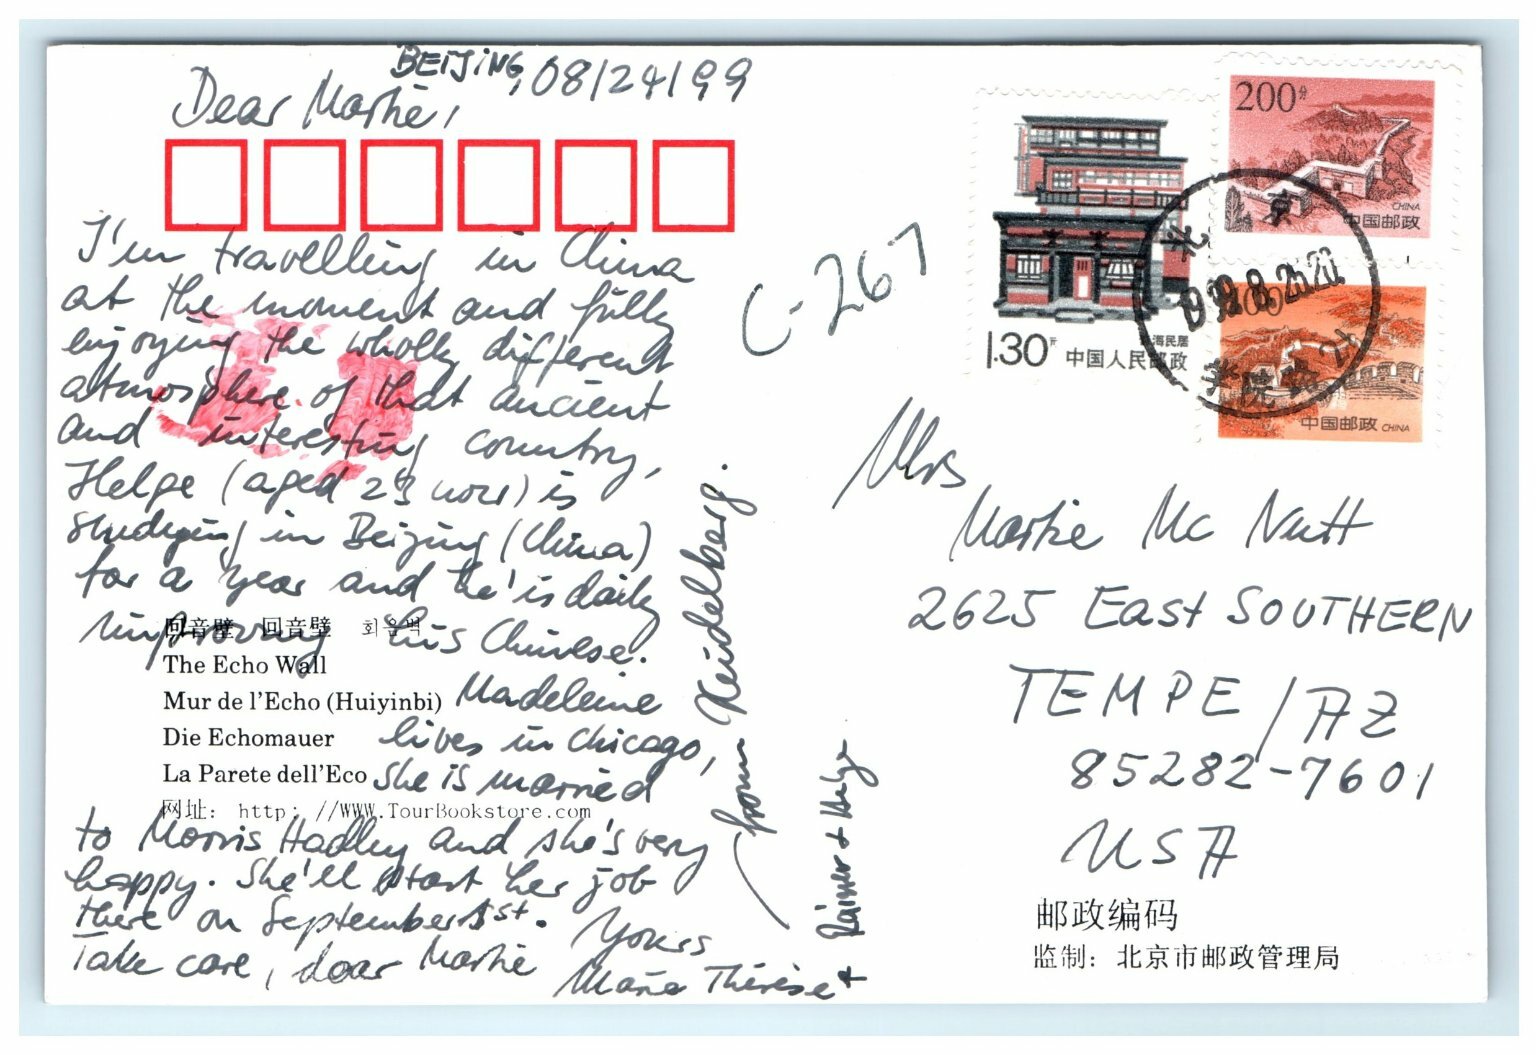 BEIJING, 08/24/99
Dear Martie,
I'm travelling in China
at the moment and fully
enjoying the wholly different
atmosphere of that ancient
and interesting country,
Helge (aged 23 now) is
studying in Beijing (China)
for a year and he is daily
improving his Chinese.
Madeleine
lives in Chicago,
she is married
to Morris Hadley and she's very
happy. She'll start her job
there on September 1st.
Take care, dear Martie
Yours
Marie Thérèse +
Rainer + Helge
from Heidelberg.
回音壁 回音壁 회음벽
The Echo Wall
Mur de l'Echo (Huiyinbi)
Die Echomauer
La Parete dell'Eco
网址: http://WWW.TourBookstore.com
C-267
1.30元
上海民居
中国人民邮政
200分
CHINA
中国邮政
中国邮政 CHINA
北京
Mrs
Martie Mc Nutt
2625 East SOUTHERN
TEMPE / AZ
85282-7601
USA
邮政编码
监制: 北京市邮政管理局